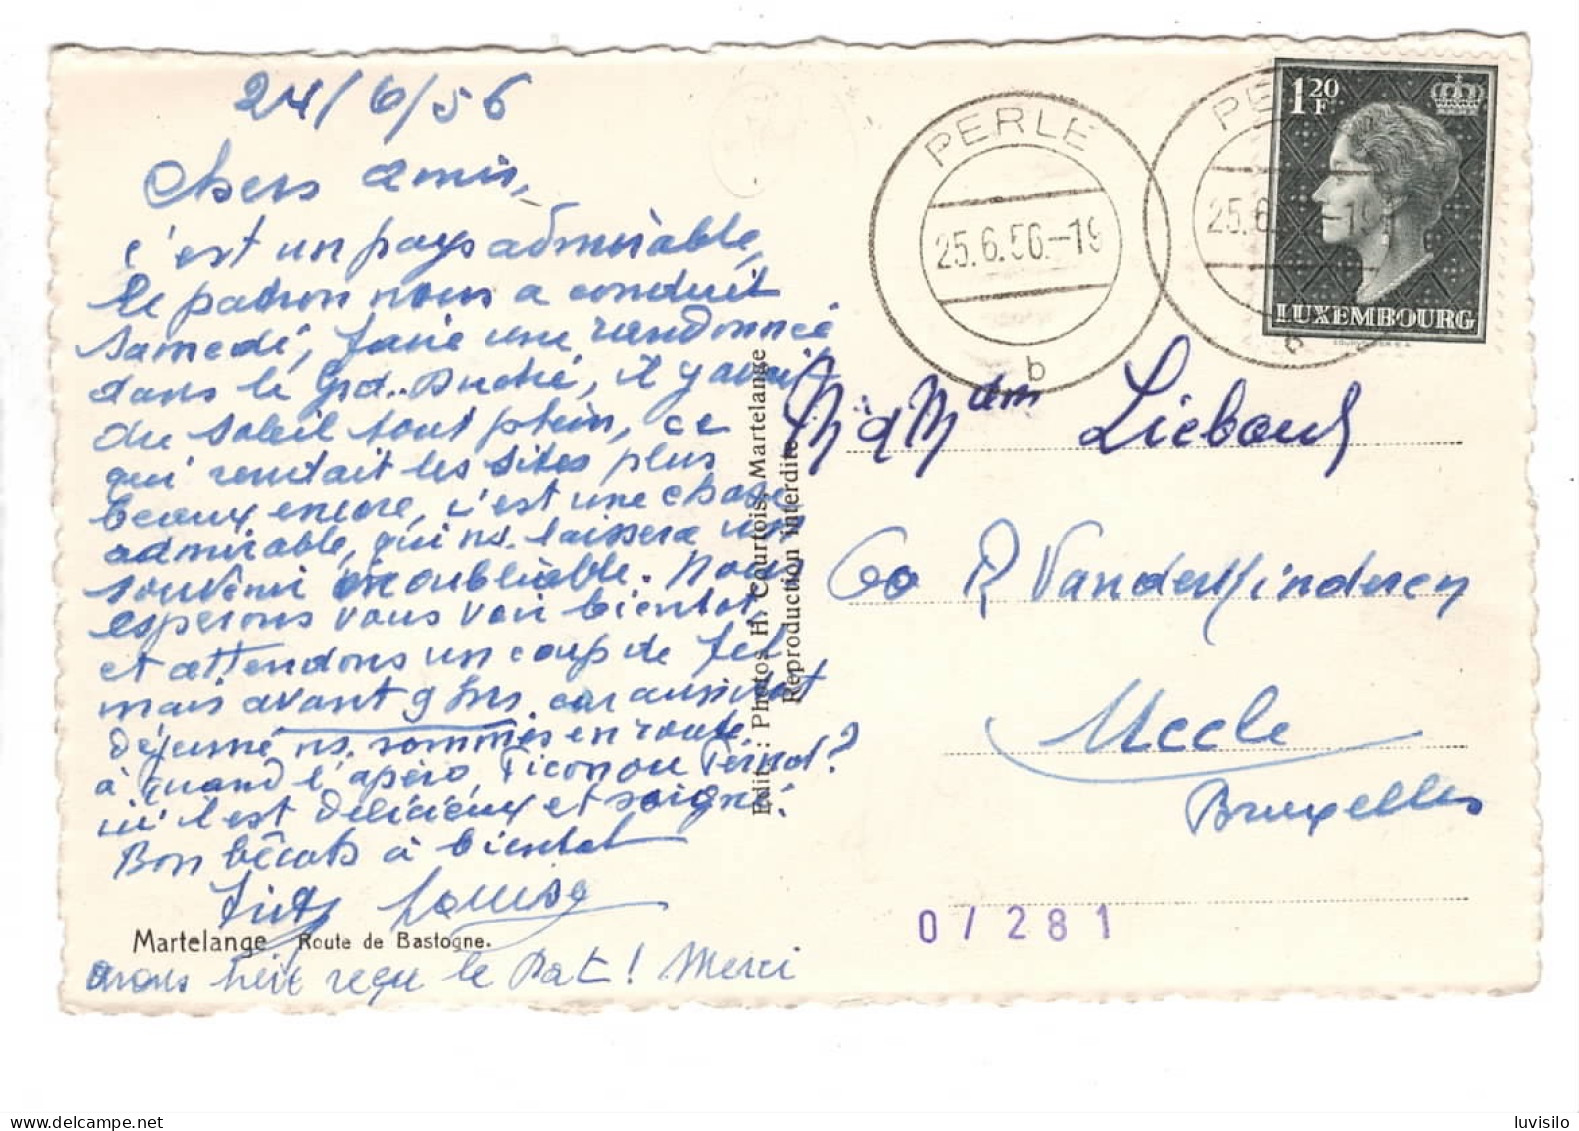 24/6/56
Chers amis,
c'est un pays admirable,
le patron nous a conduit
samedi, faire une randonnée
dans le Grd. Duché, il y avait
du soleil tout plein, ce
qui rendait les sites plus
beaux encore, c'est une chose
admirable, qui ns. laissera un
souvenir inoubliable. Nous
esperons vous voir bientot
et attendons un coup de tel
mais avant 9 hrs. car aussitot
déjeuné ns. sommes en route
à quand l'apéro, Picon ou Pernod?
ici l'est délicieux et soigné.
Bon bécots à bientot
Louise
Martelange Route de Bastogne.
avons reçu le Pat! Merci
Edit.: Photos H. Courtois, Martelange
Reproduction interdite
PERLE
25.6.56.-19
b
PE
25.6
1 20 F
LUXEMBOURG
M & Mdm Liebaud
60 R VanderKinderen
Uccle
Bruxelles
0/281
luvisilo